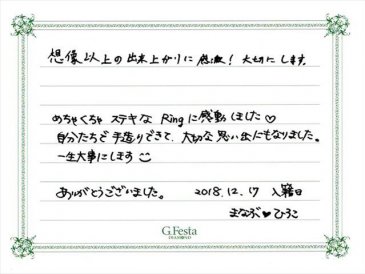 想像以上の出来上がりに感激！大切にします。
めちゃくちゃステキなRingに感動しました♡
自分たちで手造りできて、大切な思い出にもなりました。
一生大事にします☺
ありがとうございました。 2018.12.17 入籍日
まなぶ♥ひろこ
G.Festa
DIAMOND